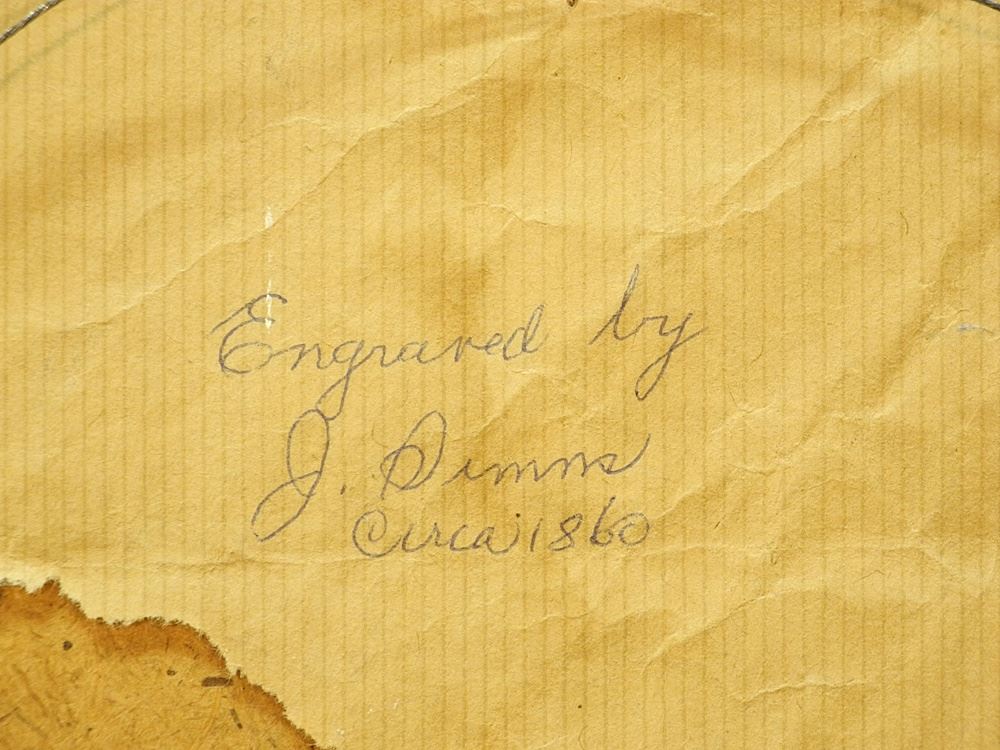 Engraved by
J. Simms
Circa 1860